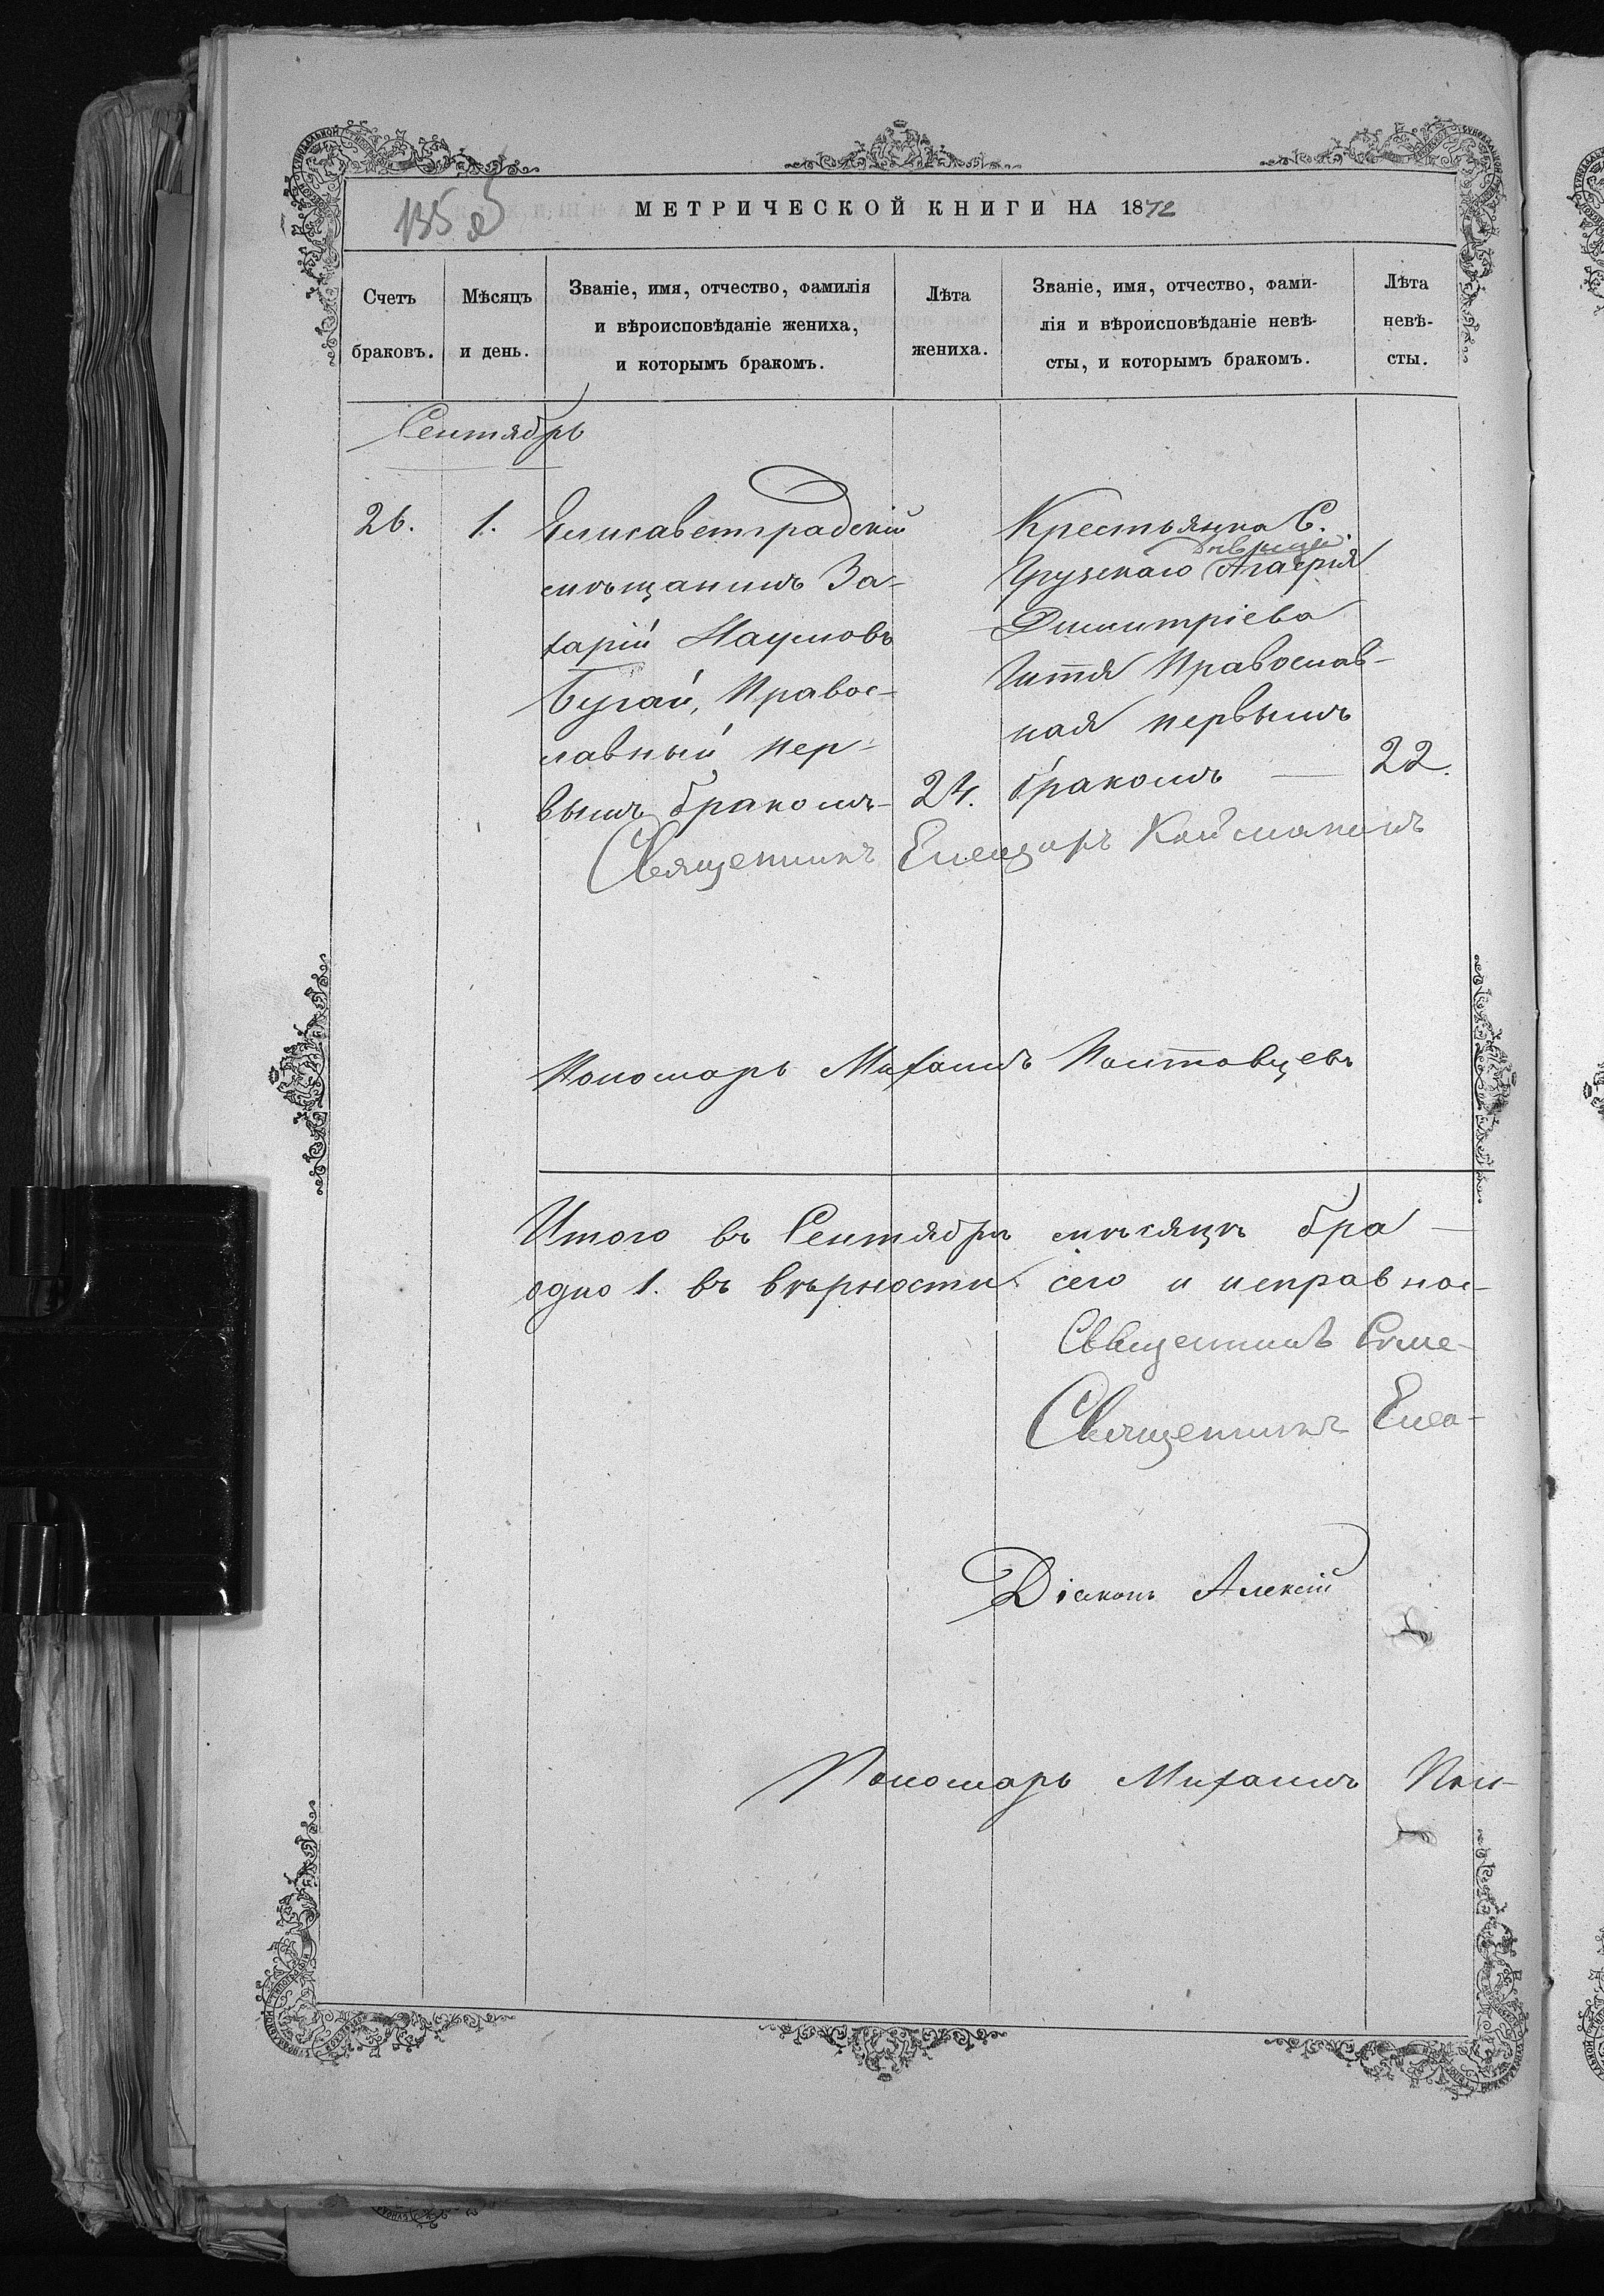 135 об
МЕТРИЧЕСКОЙ КНИГИ НА 1872
Счетъ браковъ.
Мѣсяцъ и день.
Званіе, имя, отчество, фамилія
и вѣроисповѣданіе жениха,
и которымъ бракомъ.
Лѣта жениха.
Званіе, имя, отчество, фами-
лія и вѣроисповѣданіе невѣ-
сты, и которымъ бракомъ.
Лѣта невѣ-
сты.
Сентябрь
26. 1. Елисаветградскій
мѣщанинъ За-
харій Наумовъ
Бугай, Правос-
лавный пер-
вымъ бракомъ 24.
Крестьянка С.
дѣвица
Грузскаго Агафія
Димитріева
Гиття Православ-
ная первымъ
бракомъ — 22.
Священникъ Елеазаръ Каймаканъ
Пономарь Михаилъ Полтовцевъ
Итого въ Сентябрѣ мѣсяцѣ бра-
одно 1. въ вѣрности сего и исправнос-
Священникъ Симе-
Священникъ Елеа-
Діаконъ Алексій
Пономарь Михаилъ Пол-